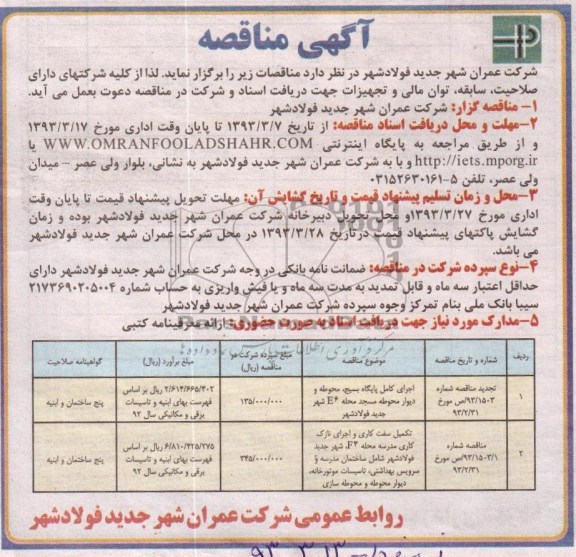 آگهی مناقصه
شرکت عمران شهر جدید فولادشهر در نظر دارد مناقصات زیر را برگزار نماید. لذا از کلیه شرکتهای دارای
صلاحیت، سابقه، توان مالی و تجهیزات جهت دریافت اسناد و شرکت در مناقصه دعوت بعمل می آید.
۱- مناقصه گزار: شرکت عمران شهر جدید فولادشهر
۲-مهلت و محل دریافت اسناد مناقصه: از تاریخ ۱۳۹۳/۳/۷ تا پایان وقت اداری مورخ ۱۳۹۳/۳/۱۷
و از طریق مراجعه به پایگاه اینترنتی WWW.OMRANFOOLADSHAHR.COM یا
http://iets.mporg.ir و یا به شرکت عمران شهر جدید فولادشهر به نشانی، بلوار ولی عصر – میدان
ولی عصر، تلفن ۵-۰۳۱۵۲۶۳۰۱۶۱
۳-محل و زمان تسلیم پیشنهاد قیمت و تاریخ گشایش آن: مهلت تحویل پیشنهاد قیمت تا پایان وقت
اداری مورخ ۱۳۹۳/۳/۲۷و محل تحویل دبیرخانه شرکت عمران شهر جدید فولادشهر بوده و زمان
گشایش پاکتهای پیشنهاد قیمت درتاریخ ۱۳۹۳/۳/۲۸ در محل شرکت عمران شهر جدید فولادشهر
می باشد.
۴-نوع سپرده شرکت در مناقصه: ضمانت نامه بانکی در وجه شرکت عمران شهر جدید فولادشهر دارای
حداقل اعتبار سه ماه و قابل تمدید به مدت سه ماه و یا فیش واریزی به حساب شماره ۲۱۷۳۶۹۰۲۰۵۰۰۴
سیبا بانک ملی بنام تمرکز وجوه سپرده شرکت عمران شهر جدید فولادشهر
۵-مدارک مورد نیاز جهت دریافت اسناد به صورت حضوری: ارائه معرفینامه کتبی
ردیف | شماره و تاریخ مناقصه | موضوع مناقصه | مبلغ سپرده شرکت در مناقصه (ریال) | مبلغ برآورد (ریال) | گواهینامه صلاحیت
۱ | تجدید مناقصه شماره ۹۳/۱۵۰۳/ص مورخ ۹۳/۲/۳۱ | اجرای کامل پایگاه بسیج، محوطه و دیوار محوطه مسجد محله E۴ شهر جدید فولادشهر | ۱۳۵/۰۰۰/۰۰۰ | ۲/۶۱۴/۶۶۵/۴۰۲ ریال بر اساس فهرست بهای ابنیه و تاسیسات برقی و مکانیکی سال ۹۲ | پنج ساختمان و ابنیه
۲ | مناقصه شماره ۹۳/۱۵۰۳/۱/ص مورخ ۹۳/۲/۳۱ | تکمیل سفت کاری و اجرای نازک کاری مدرسه محله F۴، شهر جدید فولادشهر شامل ساختمان مدرسه و سرویس بهداشتی، تاسیسات موتورخانه، دیوار محوطه و محوطه سازی | ۳۴۵/۰۰۰/۰۰۰ | ۶/۸۱۰/۴۲۵/۲۷۵ ریال بر اساس فهرست بهای ابنیه و تاسیسات برقی و مکانیکی سال ۹۲ | پنج ساختمان و ابنیه
روابط عمومی شرکت عمران شهر جدید فولادشهر